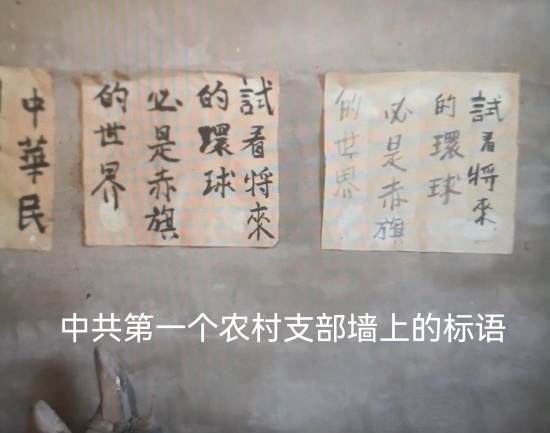 試看將來
的環球
必是赤旗
的世界
試看將來
的環球
必是赤旗
的世界
中華民
中共第一个农村支部墙上的标语